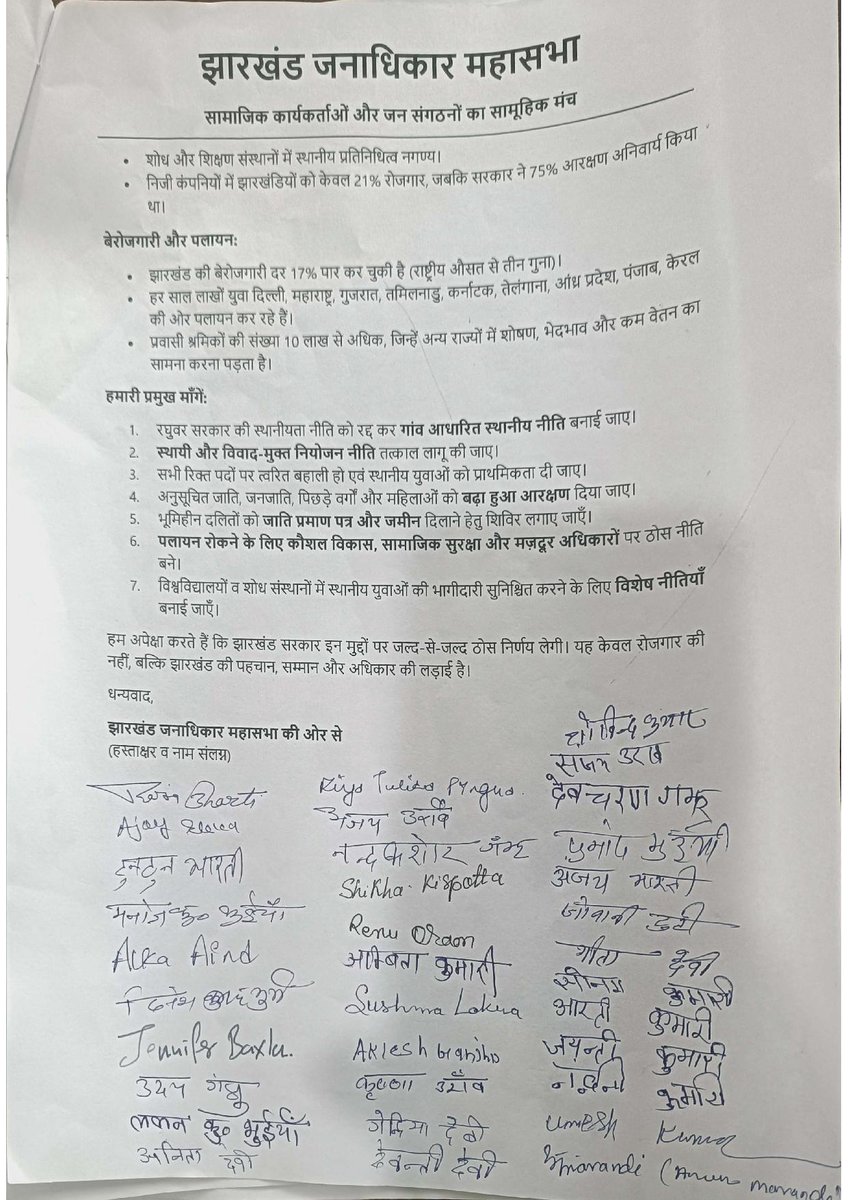 झारखंड जनाधिकार महासभा
सामाजिक कार्यकर्ताओं और जन संगठनों का सामूहिक मंच
• शोध और शिक्षण संस्थानों में स्थानीय प्रतिनिधित्व नगण्य।
• निजी कंपनियों में झारखंडियों को केवल 21% रोजगार, जबकि सरकार ने 75% आरक्षण अनिवार्य किया
था।
बेरोजगारी और पलायन:
• झारखंड की बेरोजगारी दर 17% पार कर चुकी है (राष्ट्रीय औसत से तीन गुना)।
• हर साल लाखों युवा दिल्ली, महाराष्ट्र, गुजरात, तमिलनाडु, कर्नाटक, तेलंगाना, आंध्र प्रदेश, पंजाब, केरल
की ओर पलायन कर रहे हैं।
• प्रवासी श्रमिकों की संख्या 10 लाख से अधिक, जिन्हें अन्य राज्यों में शोषण, भेदभाव और कम वेतन का
सामना करना पड़ता है।
हमारी प्रमुख माँगें:
1. रघुवर सरकार की स्थानीयता नीति को रद्द कर गांव आधारित स्थानीय नीति बनाई जाए।
2. स्थायी और विवाद-मुक्त नियोजन नीति तत्काल लागू की जाए।
3. सभी रिक्त पदों पर त्वरित बहाली हो एवं स्थानीय युवाओं को प्राथमिकता दी जाए।
4. अनुसूचित जाति, जनजाति, पिछड़े वर्गों और महिलाओं को बढ़ा हुआ आरक्षण दिया जाए।
5. भूमिहीन दलितों को जाति प्रमाण पत्र और जमीन दिलाने हेतु शिविर लगाए जाएँ।
6. पलायन रोकने के लिए कौशल विकास, सामाजिक सुरक्षा और मज़दूर अधिकारों पर ठोस नीति
बने।
7. विश्वविद्यालयों व शोध संस्थानों में स्थानीय युवाओं की भागीदारी सुनिश्चित करने के लिए विशेष नीतियाँ
बनाई जाएँ।
हम अपेक्षा करते हैं कि झारखंड सरकार इन मुद्दों पर जल्द-से-जल्द ठोस निर्णय लेगी। यह केवल रोजगार की
नहीं, बल्कि झारखंड की पहचान, सम्मान और अधिकार की लड़ाई है।
धन्यवाद,
झारखंड जनाधिकार महासभा की ओर से
(हस्ताक्षर व नाम संलग्न)
Bharti
Ajay
टुनटुन भारती
मनोज कु० भुईयाँ
Alka Aind
दिनेश
Jennifer Baxla.
उदय गंझू
ललन कु० भुईयाँ
अनिता देवी
Riya Tulika Pingua.
अजय उराँव
नन्दकिशोर गंझू
Shikha Kispotta
Renu Oraon
अम्बिता कुमारी
Sushma Lakra
Aklesh Ganjhu
कृष्णा उराँव
देवी
देवन्ती देवी
कुमार
संजय उराव
देवचरण गंझू
प्रमोद भुईयाँ
अजय भारती
गीता देवी
कुमारी
आरती कुमारी
जयन्ती कुमारी
नन्दिनी कुमारी
Umesh Kumar
Marandi